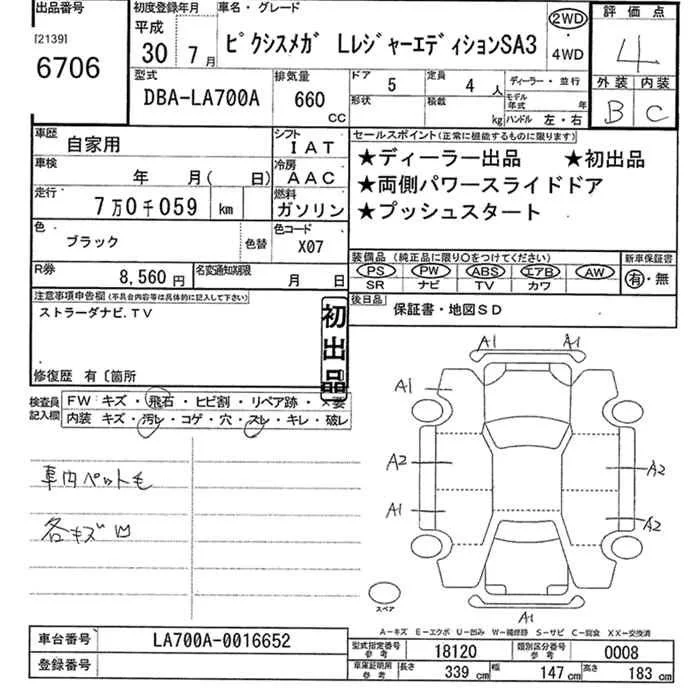 出品番号
[2139]
6706
初度登録年月
平成
30年 7月
車名・グレード
ピクシスメガ LレジャーエディションSA3
2WD
・
4WD
評価点
4
外装 内装
B C
型式
DBA-LA700A
排気量
660
CC
ドア
5
定員
4人
形状
積載
kg
ディーラー・並行
モデル年式 年
ハンドル 左・右
車歴
自家用
シフト
IAT
車検
年 月( 日)
冷房
AAC
走行
7万0千059 km
燃料
ガソリン
色
ブラック
色替
色コード
X07
R券
8,560円
名変通知期限
月 日
セールスポイント(正常に機能するものに限ります)
★ディーラー出品 ★初出品
★両側パワースライドドア
★プッシュスタート
装備品(純正品に限り○をつけてください)
PS PW ABS エアB AW
SR ナビ TV カワ
新車保証書
有・無
後日品
保証書・地図SD
注意事項申告欄(不具合内容等は具体的に記入して下さい)
ストラーダナビ.TV
初出品
修復歴 有〔箇所
検査員記入欄
FW キズ・飛石・ヒビ割・リペア跡・×要
内装 キズ・汚レ・コゲ・穴・スレ・キレ・破レ
車内ペット毛
各キズ凹
A1 A1
A1
A2 A2
A1 A2
A1
スペア
A−キズ E−エクボ U−凹み W−補修跡 S−サビ C−腐食 XX−交換済
車台番号
LA700A-0016652
登録番号
型式指定番号
参考
18120
類別区分番号
参考
0008
車庫証明用
参考
長さ 339 cm 幅 147 cm 高さ 183 cm